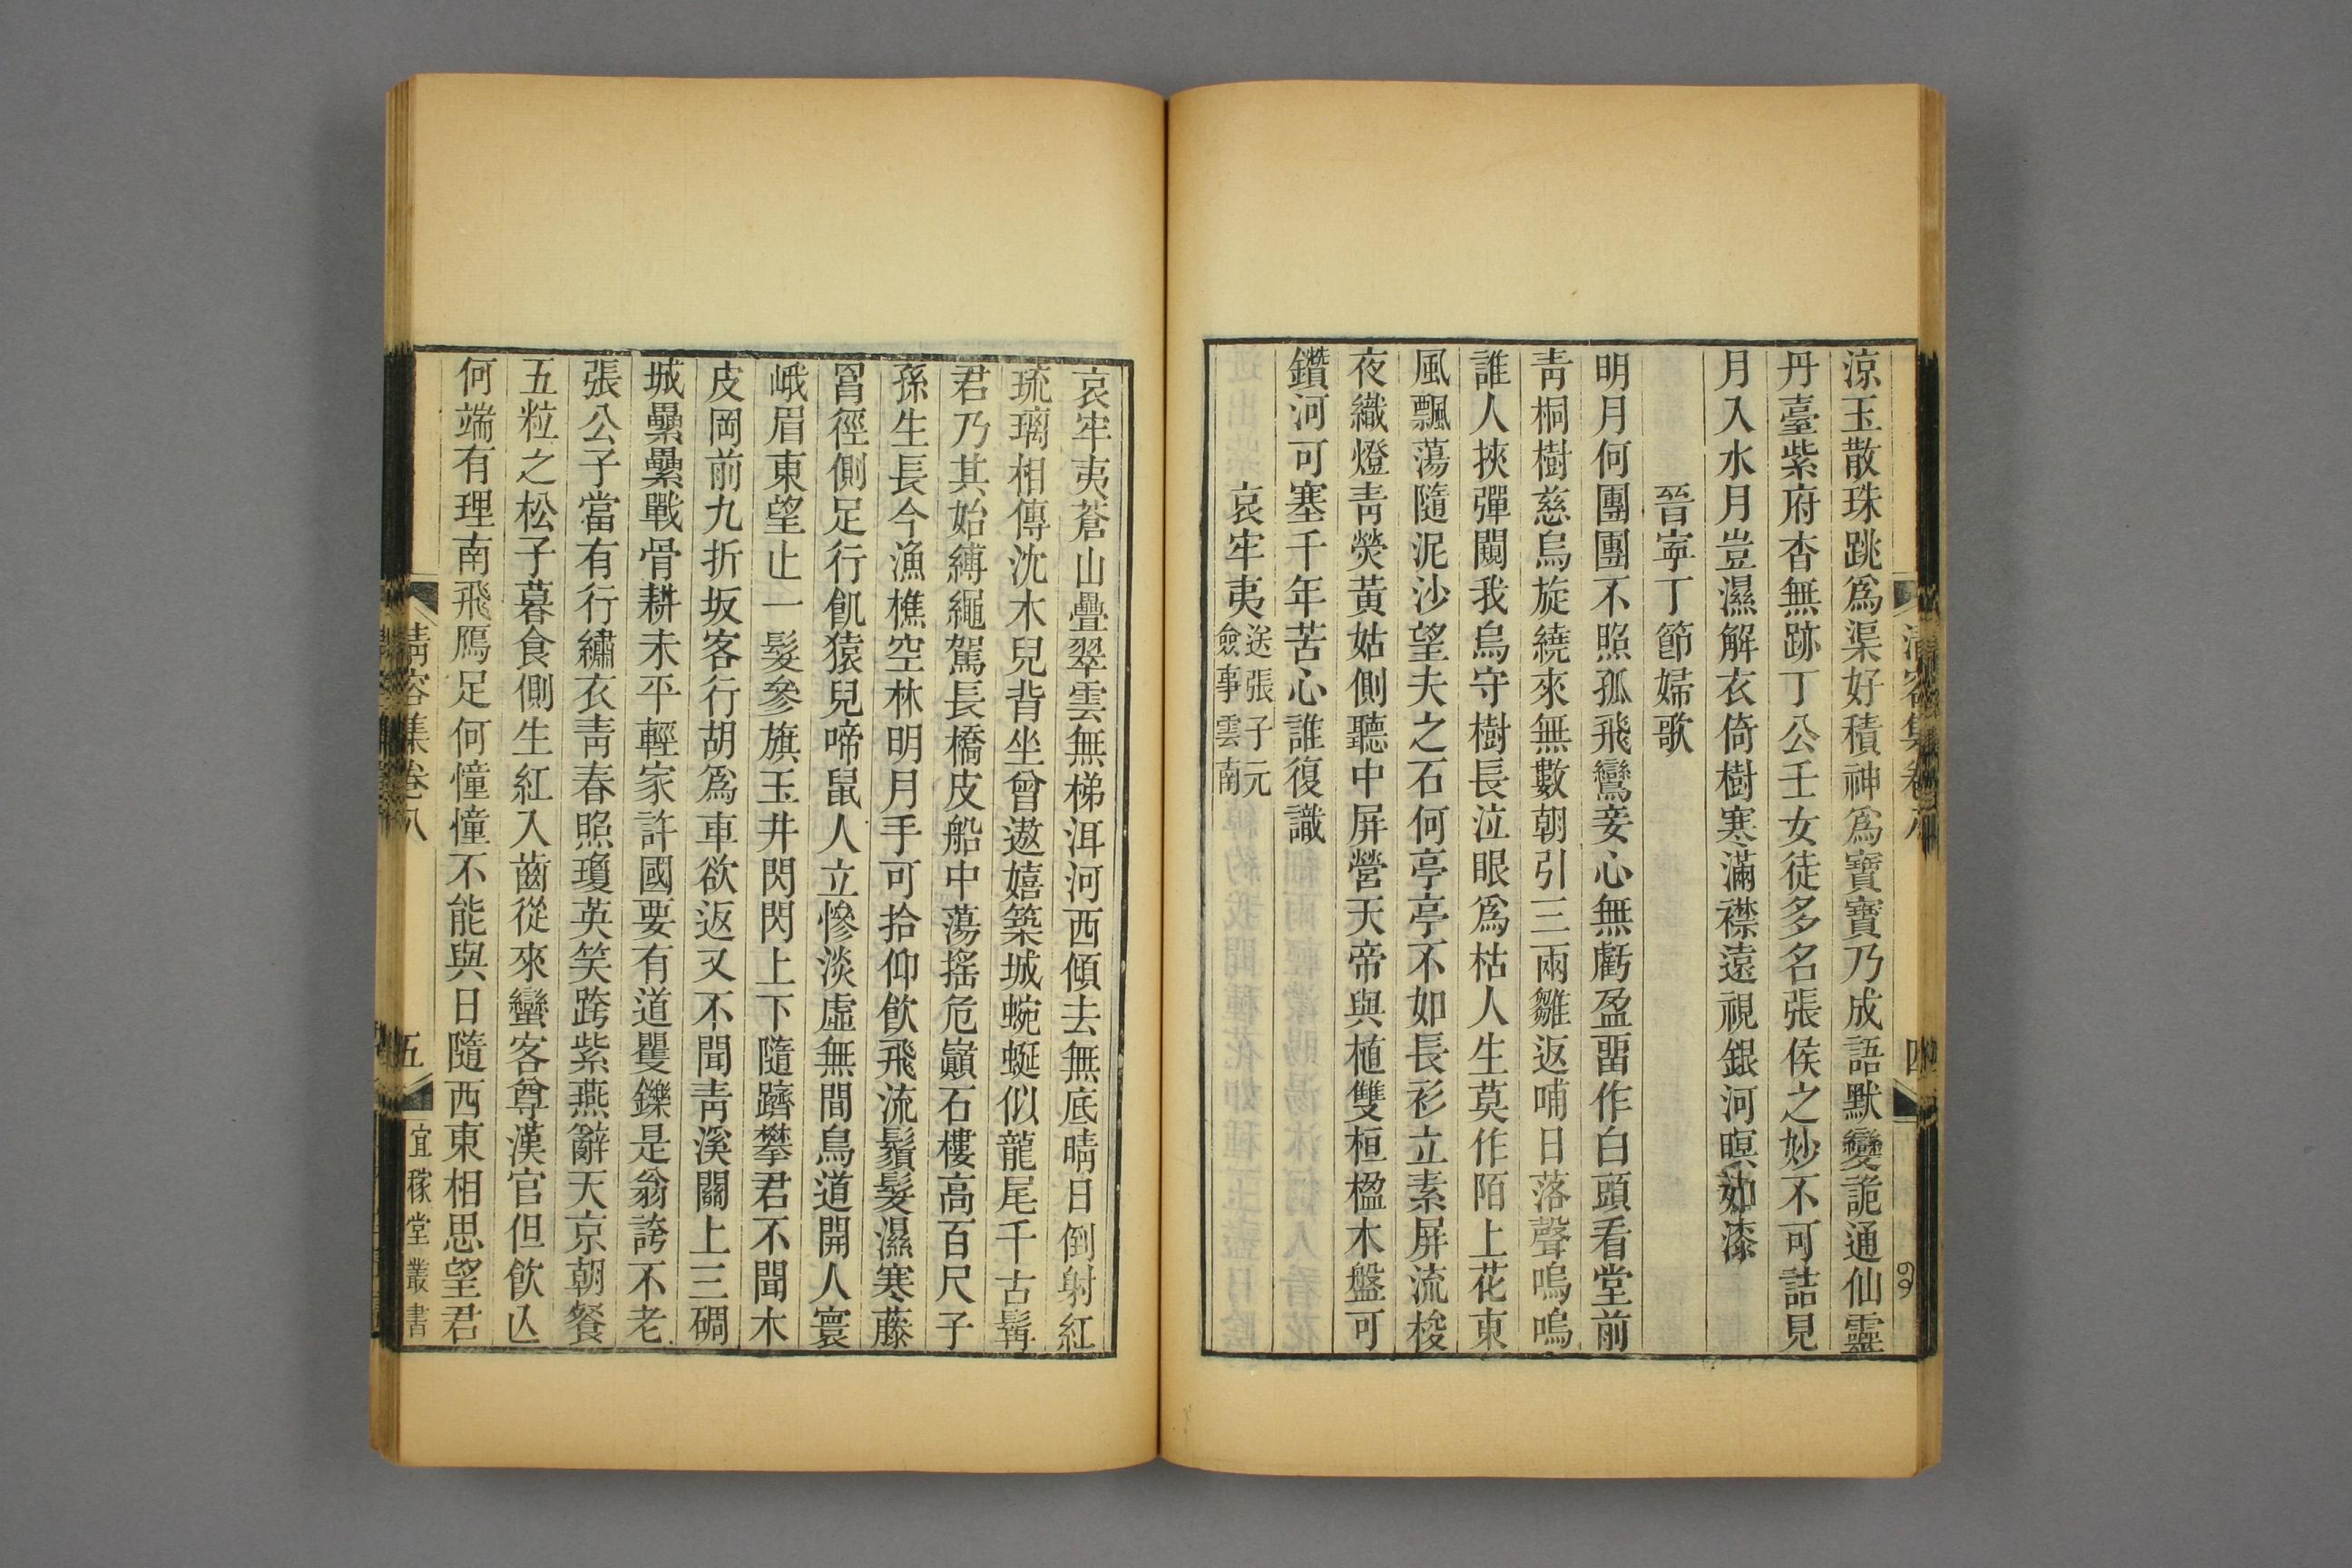 涼玉散珠跳爲渠好積神爲寶寶乃成語默變詭通仙靈
丹臺紫府杳無跡丁公壬女徒多名張侯之妙不可詰見
月入水月豈濕解衣倚樹寒滿襟遠視銀河暝如漆
晉寧丁節婦歌
明月何團團不照孤飛鸞妾心無虧盈畱作白頭看堂前
靑桐樹慈烏旋繞來無數朝引三兩雛返哺日落聲嗚嗚
誰人挾彈闚我烏守樹長泣眼爲枯人生莫作陌上花東
風飄蕩隨泥沙望夫之石何亭亭不如長衫立素屏流梭
夜織燈靑熒黃姑側聽中屏營天帝與植雙桓楹木盤可
鑽河可塞千年苦心誰復識
哀牢夷送張子元僉事雲南
哀牢夷蒼山疊翠雲無梯洱河西傾去無底晴日倒射紅
琉璃相傳沈木兒背坐曾遨嬉築城蜿蜒似龍尾千古髯
君乃其始縛繩駕長橋皮船中蕩搖危巓石樓高百尺子
孫生長今漁樵空林明月手可拾仰飮飛流鬚髮濕寒藤
罥徑側足行飢猿兒啼鼠人立慘淡虛無間鳥道開人寰
峨眉東望止一髮參旗玉井閃閃上下隨躋攀君不聞木
皮岡前九折坂客行胡爲車欲返又不聞靑溪關上三碉
城纍纍戰骨耕未平輕家許國要有道矍鑠是翁誇不老
張公子當有行繡衣靑春照瓊英笑跨紫燕辭天京朝餐
五粒之松子暮食側生紅入齒從來蠻客尊漢官但飮亾
何端有理南飛鴈足何憧憧不能與日隨西東相思望君
淸容集卷八 四
淸容集卷八 五 宜稼堂叢書